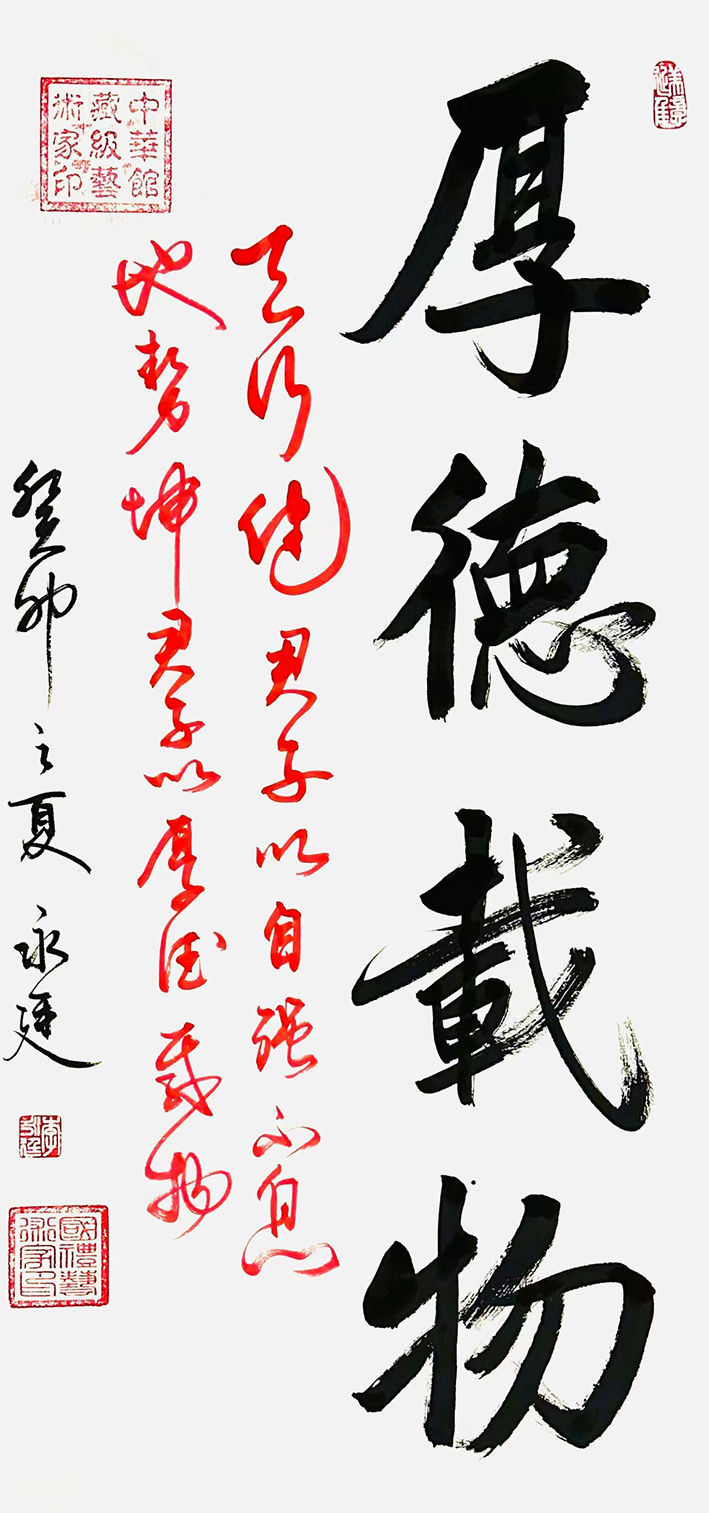 厚德載物
天行健君子以自强不息
地势坤君子以厚德载物
癸卯之夏永廷
中華館
藏級藝
術家印
國禮藝
術家印